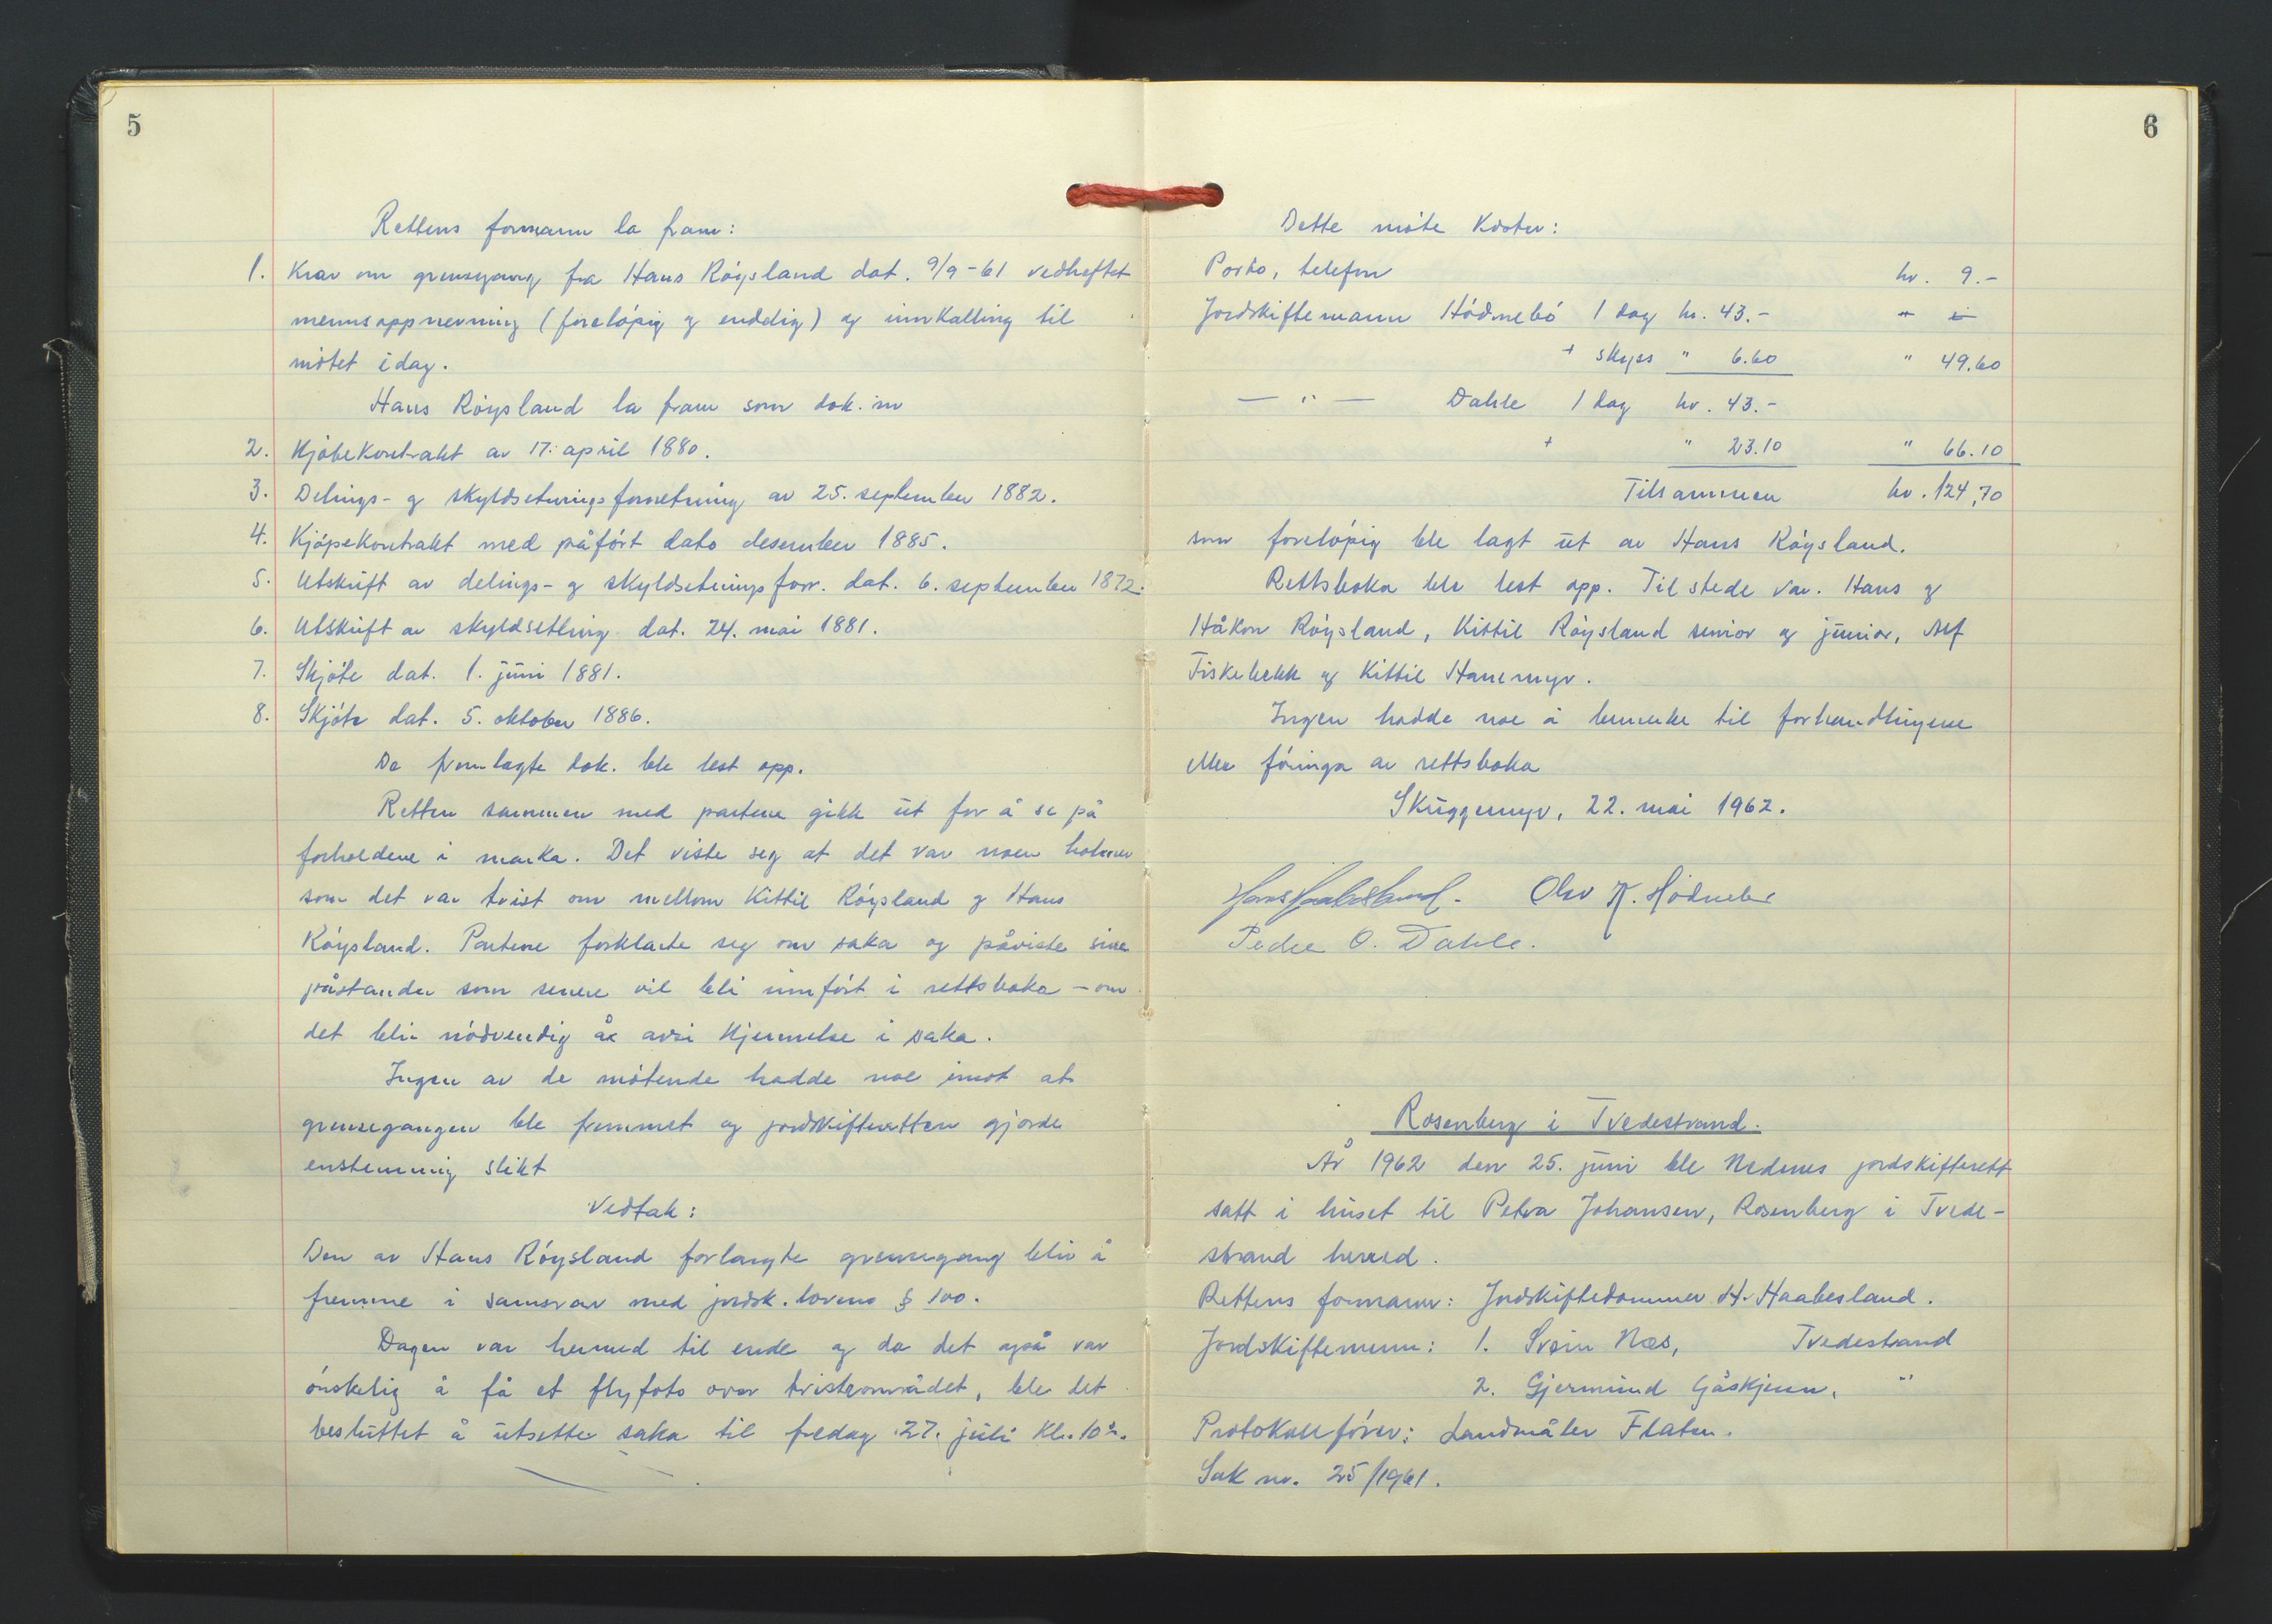 5
Rettens formann la fram:
1. Krav om grensegang fra Hans Röysland dat. 9/9-61 vedheftet
mennsoppnevning (foreløpig og endelig) og innkalling til
møtet idag.
Hans Röysland la fram som dok. nr
2. Kjöbekontrakt av 17. april 1880.
3. Delings- og skyldsetningsforretning av 25. september 1882.
4. Kjöpekontrakt med påfört dato desember 1885.
5. Utskrift av delings- og skyldsetningsforr. dat. 6. september 1872.
6. Utskrift av skyldsetting dat. 24. mai 1881.
7. Skjöte dat. 1. juni 1881.
8. Skjöte dat. 5. oktober 1886.
De framlagte dok. ble lest opp.
Retten sammen med partene gikk ut for å se på
forholdene i marka. Det viste seg at det var noen holmer
som det var tvist om mellom Kittil Röysland og Hans
Röysland. Partene forklarte seg om saka og påviste sine
påstander som senere vil bli innfört i rettsboka – om
det blir nödvendig å avsi kjennelse i saka.
Ingen av de mötende hadde noe imot at
grensegangen ble fremmet og jordskifteretten gjorde
enstemmig slikt
Vedtak:
Den av Hans Röysland forlangte grensegang blir å
fremme i samsvar med jordsk.lovens § 100.
Dagen var hermed til ende og da det også var
önskelig å få et flyfoto over tvisteområdet, ble det
besluttet å utsette saka til fredag 27. juli kl. 10⁰⁰.
6
Dette möte koster:
Porto, telefon kr. 9.-
Jordskiftemann Hödnebö 1 dag kr. 43.-
+ skyss " 6.60 " 49.60
— " — Dahle 1 dag kr. 43.-
+ " 23.10 " 66.10
Tilsammen kr. 124,70
som foreløpig ble lagt ut av Hans Röysland.
Rettsboka ble lest opp. Til stede var. Hans og
Håkon Röysland, Kittil Röysland senior og junior, Alf
Fiskebekk og Kittil Hanemyr.
Ingen hadde noe å bemerke til forhandlingene
eller föringa av rettsboka
Skuggemyr, 22. mai 1962.
Hans Haabesland. Olav K. Hödnebö
Peder O. Dahle.
Rosenberg i Tvedestrand.
År 1962 den 25. juni ble Nedenes jordskifterett
satt i huset til Petra Johansen, Rosenberg i Tvede-
strand herred.
Rettens formann: Jordskiftedommer H. Haabesland.
Jordskiftemenn: 1. Svein Næs, Tvedestrand
2. Gjermund Gåskjenn, "
Protokollförer: Landmåler Flaten.
Sak nr. 25/1961.